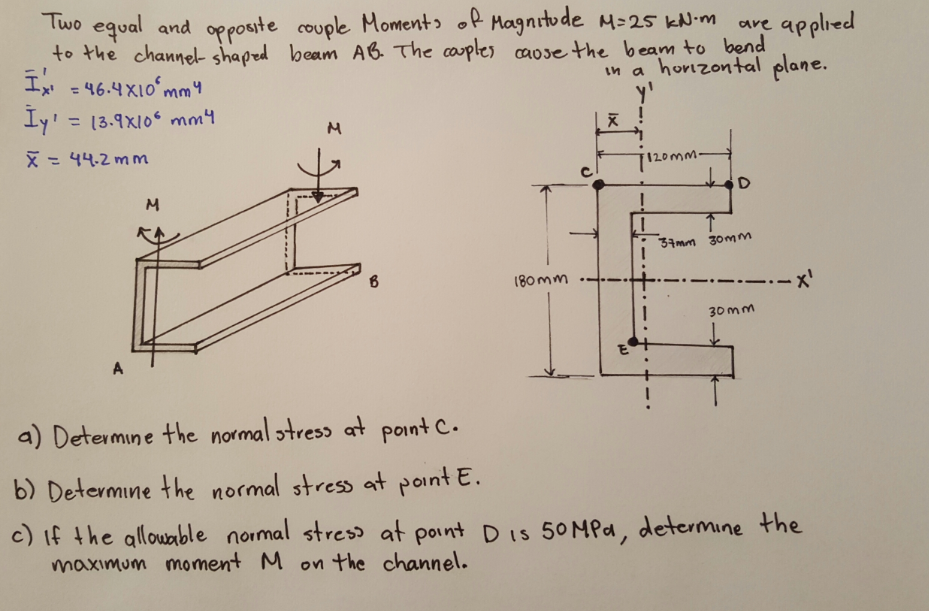 Two equal and opposite couple Moments of Magnitude M=25 kN·m are applied
to the channel-shaped beam AB. The couples cause the beam to bend
in a horizontal plane.
Ī'x' = 46.4X10⁶ mm⁴
Īy' = 13.9X10⁶ mm⁴
x̄ = 44.2mm
M
M
A
B
y'
x̄
120mm
C
D
37mm
30mm
180mm
x'
30mm
E
a) Determine the normal stress at point C.
b) Determine the normal stress at point E.
c) If the allowable normal stress at point D is 50MPa, determine the
maximum moment M on the channel.